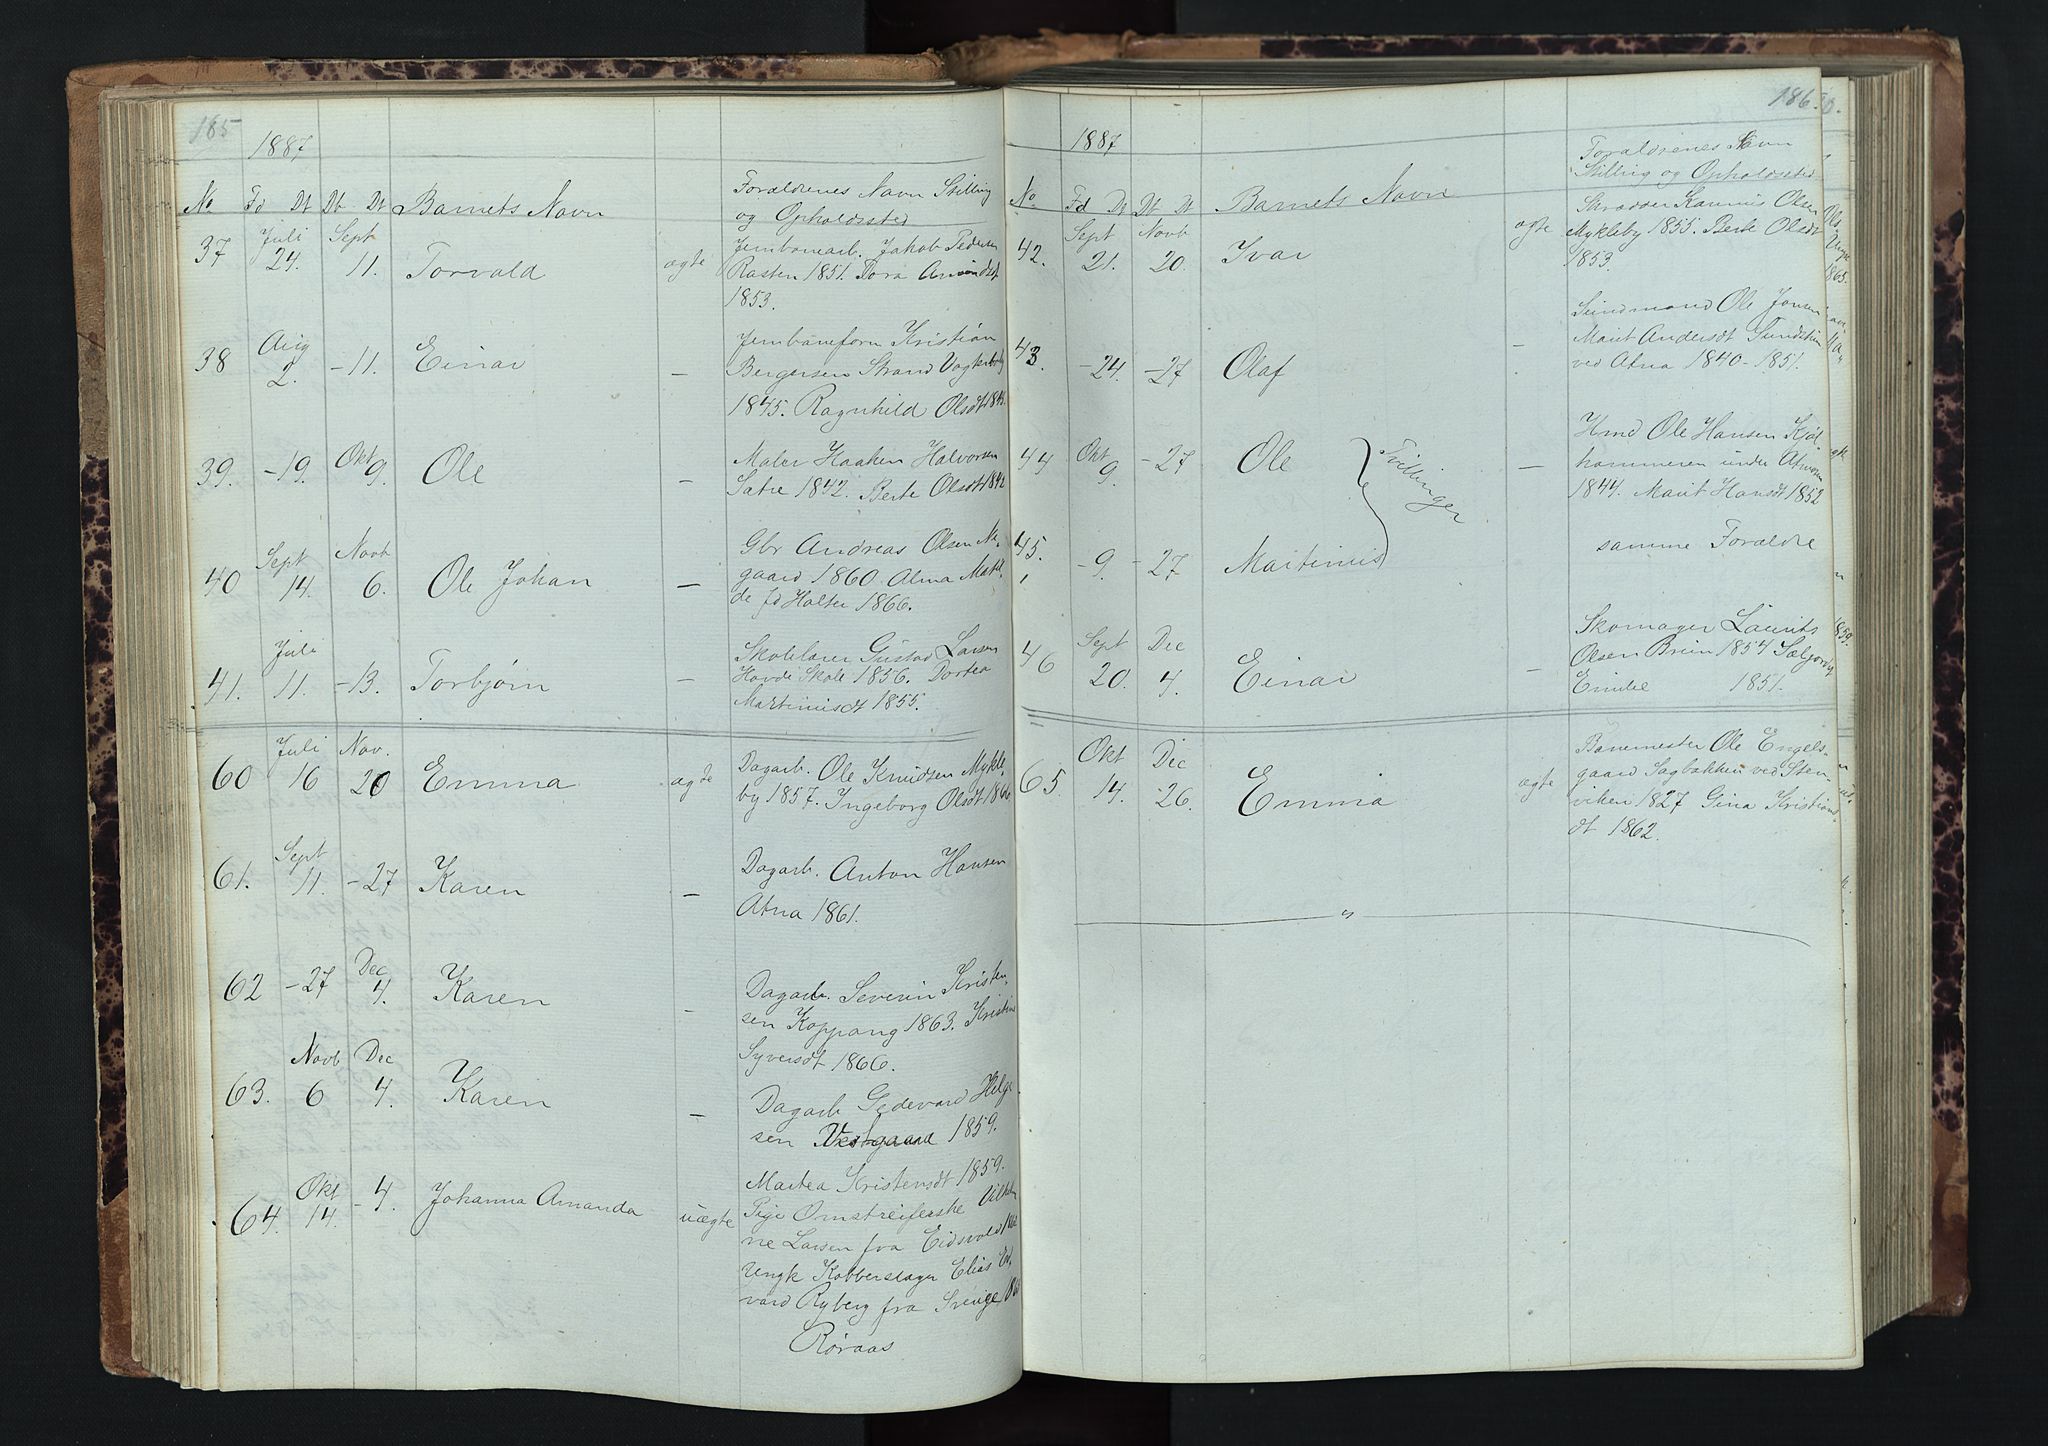 165
1887
No Fd Dt Dt Dt Barnets Navn Forældrenes Navn Stilling
og Opholdssted
37 Juli 24. Sept 11. Torvald ægte Jernbanearb. Jakob Pedersen
Rasten 1851. Tora Amundsdt
1853.
38 Aug 2. - 11. Einar - Jernbaneform Kristian
Bergersen Strand
1845. Ragnhild Olsdt
39. - 19. Okt 9. Ole - Maler Haaken Halvorsen
Sætre 1842. Berte Olsdt 1842
40 Sept 14. Novb 6. Ole Johan - Gbr Andreas Olsen Ne-
gaard 1860. Alma Matil-
de fd Halter 1866.
41. Juli 11. - 13. Torbjørn - Skolelærer Gustav Larsen
Hovde Skole 1856. Dortea
Martinusdt 1855.
60 Juli 16 Nov. 20 Emma ægte Dagarb. Ole Knudsen Mykle-
by 1857. Ingeborg Olsdt 1866
61. Sept 11. - 27 Karen - Dagarb. Anton Hansen
Atna 1861.
62 - 27 Dec 4. Karen - Dagarb. Severin Kristen-
sen Koppang 1863. Kristine
Syversdt 1866.
63. Novb 6 Dec 4. Karen - Dagarb Gedevard Helge
sen Vestgaard 1859.
Martea Kristensdt 1859.
64. Okt 14. - 4. Johanna Amanda uægte Pige Omstreiferske Vilhelmi
ne Larsen fra Eidsvold
Ungk Kobberslager Elias Ed-
vard Ryberg fra Sverige
Røraas
186
1887
No Fd Dt Dt Dt Barnets Navn Forældrenes Navn
Stilling og Opholdssted
42. Sept 21. Novb 20. Ivar ægte Skrædder Olsen
Mykleby 1855. Berte Olsdt
1853.
43. - 24. - 27 Olaf - Sundmand Ole Jonsen
Marit Andersdt Sundstuen
ved Atna 1840 - 1851.
44 Okt 9. - 27 Ole Tvillinger - Hmd Ole Hansen Kjøl-
hammeren under Atneosen
1844. Marit Hansdt 1852
45. - 9. - 27 Martinus samme Forældre
46 Sept 20. Dec 4. Einar - Skomager Laurits
Olsen Brein 1854
Emilie 1851.
65. Okt 14. Dec 26. Emma ægte Banemester Ole Engels-
gaard Sagbakken ved Sten-
viken 1827 Gina Kristians-
dt 1862.